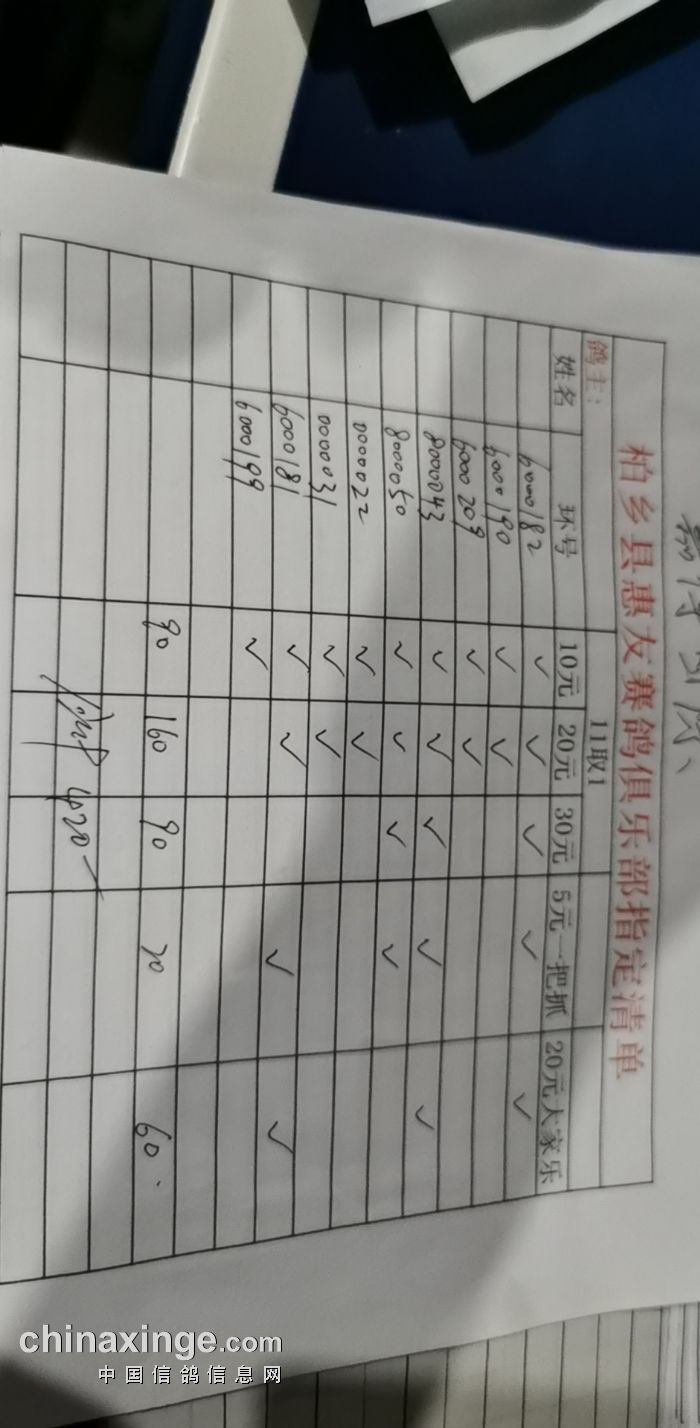 柏乡县惠友赛鸽俱乐部指定清单
鸽主：
11取1
姓名 环号 10元 20元 30元 5元一把抓 20元大家乐
6000182 ✓ ✓ ✓ ✓ ✓
6000190 ✓ ✓
6000209 ✓ ✓
8000043 ✓ ✓ ✓ ✓ ✓
8000050 ✓ ✓ ✓ ✓
0000022 ✓ ✓
0000031 ✓ ✓
6000181 ✓ ✓ ✓ ✓
6000199 ✓
90 160 90 20 60
420
chinaxinge.com
中国信鸽信息网